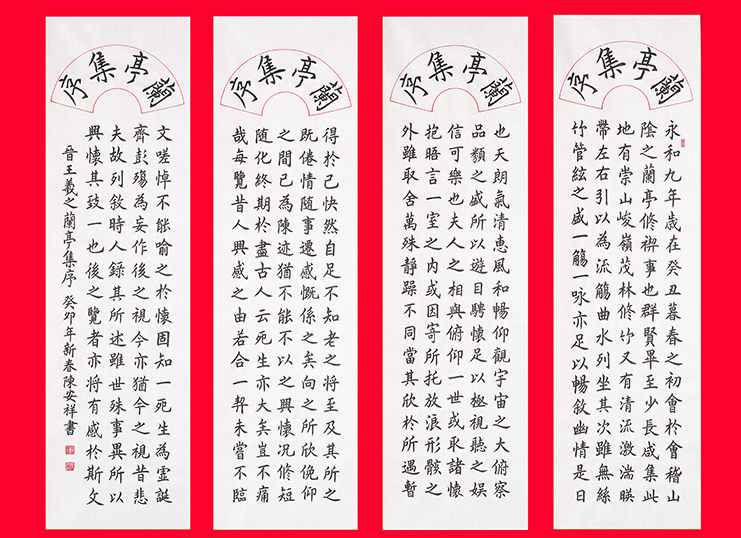 蘭亭集序
永和九年歲在癸丑暮春之初會於會稽山
陰之蘭亭修禊事也群賢畢至少長咸集此
地有崇山峻嶺茂林修竹又有清流激湍暎
帶左右引以為流觴曲水列坐其次雖無絲
竹管絃之盛一觴一咏亦足以暢敘幽情是日
蘭亭集序
也天朗氣清惠風和暢仰觀宇宙之大俯察
品類之盛所以遊目騁懷足以極視聽之娛
信可樂也夫人之相與俯仰一世或取諸懷
抱晤言一室之內或因寄所托放浪形骸之
外雖取舍萬殊靜躁不同當其欣於所遇暫
蘭亭集序
得於己快然自足不知老之將至及其所之
既倦情隨事遷感慨係之矣向之所欣俛仰
之間已為陳迹猶不能不以之興懷況修短
隨化終期於盡古人云死生亦大矣豈不痛
哉每覽昔人興感之由若合一契未嘗不臨
蘭亭集序
文嗟悼不能喻之於懷固知一死生為虛誕
齊彭殤為妄作後之視今亦猶今之視昔悲
夫故列敘時人錄其所述雖世殊事異所以
興懷其致一也後之覽者亦將有感於斯文
晉王羲之蘭亭集序 癸卯年新春陳安祥書